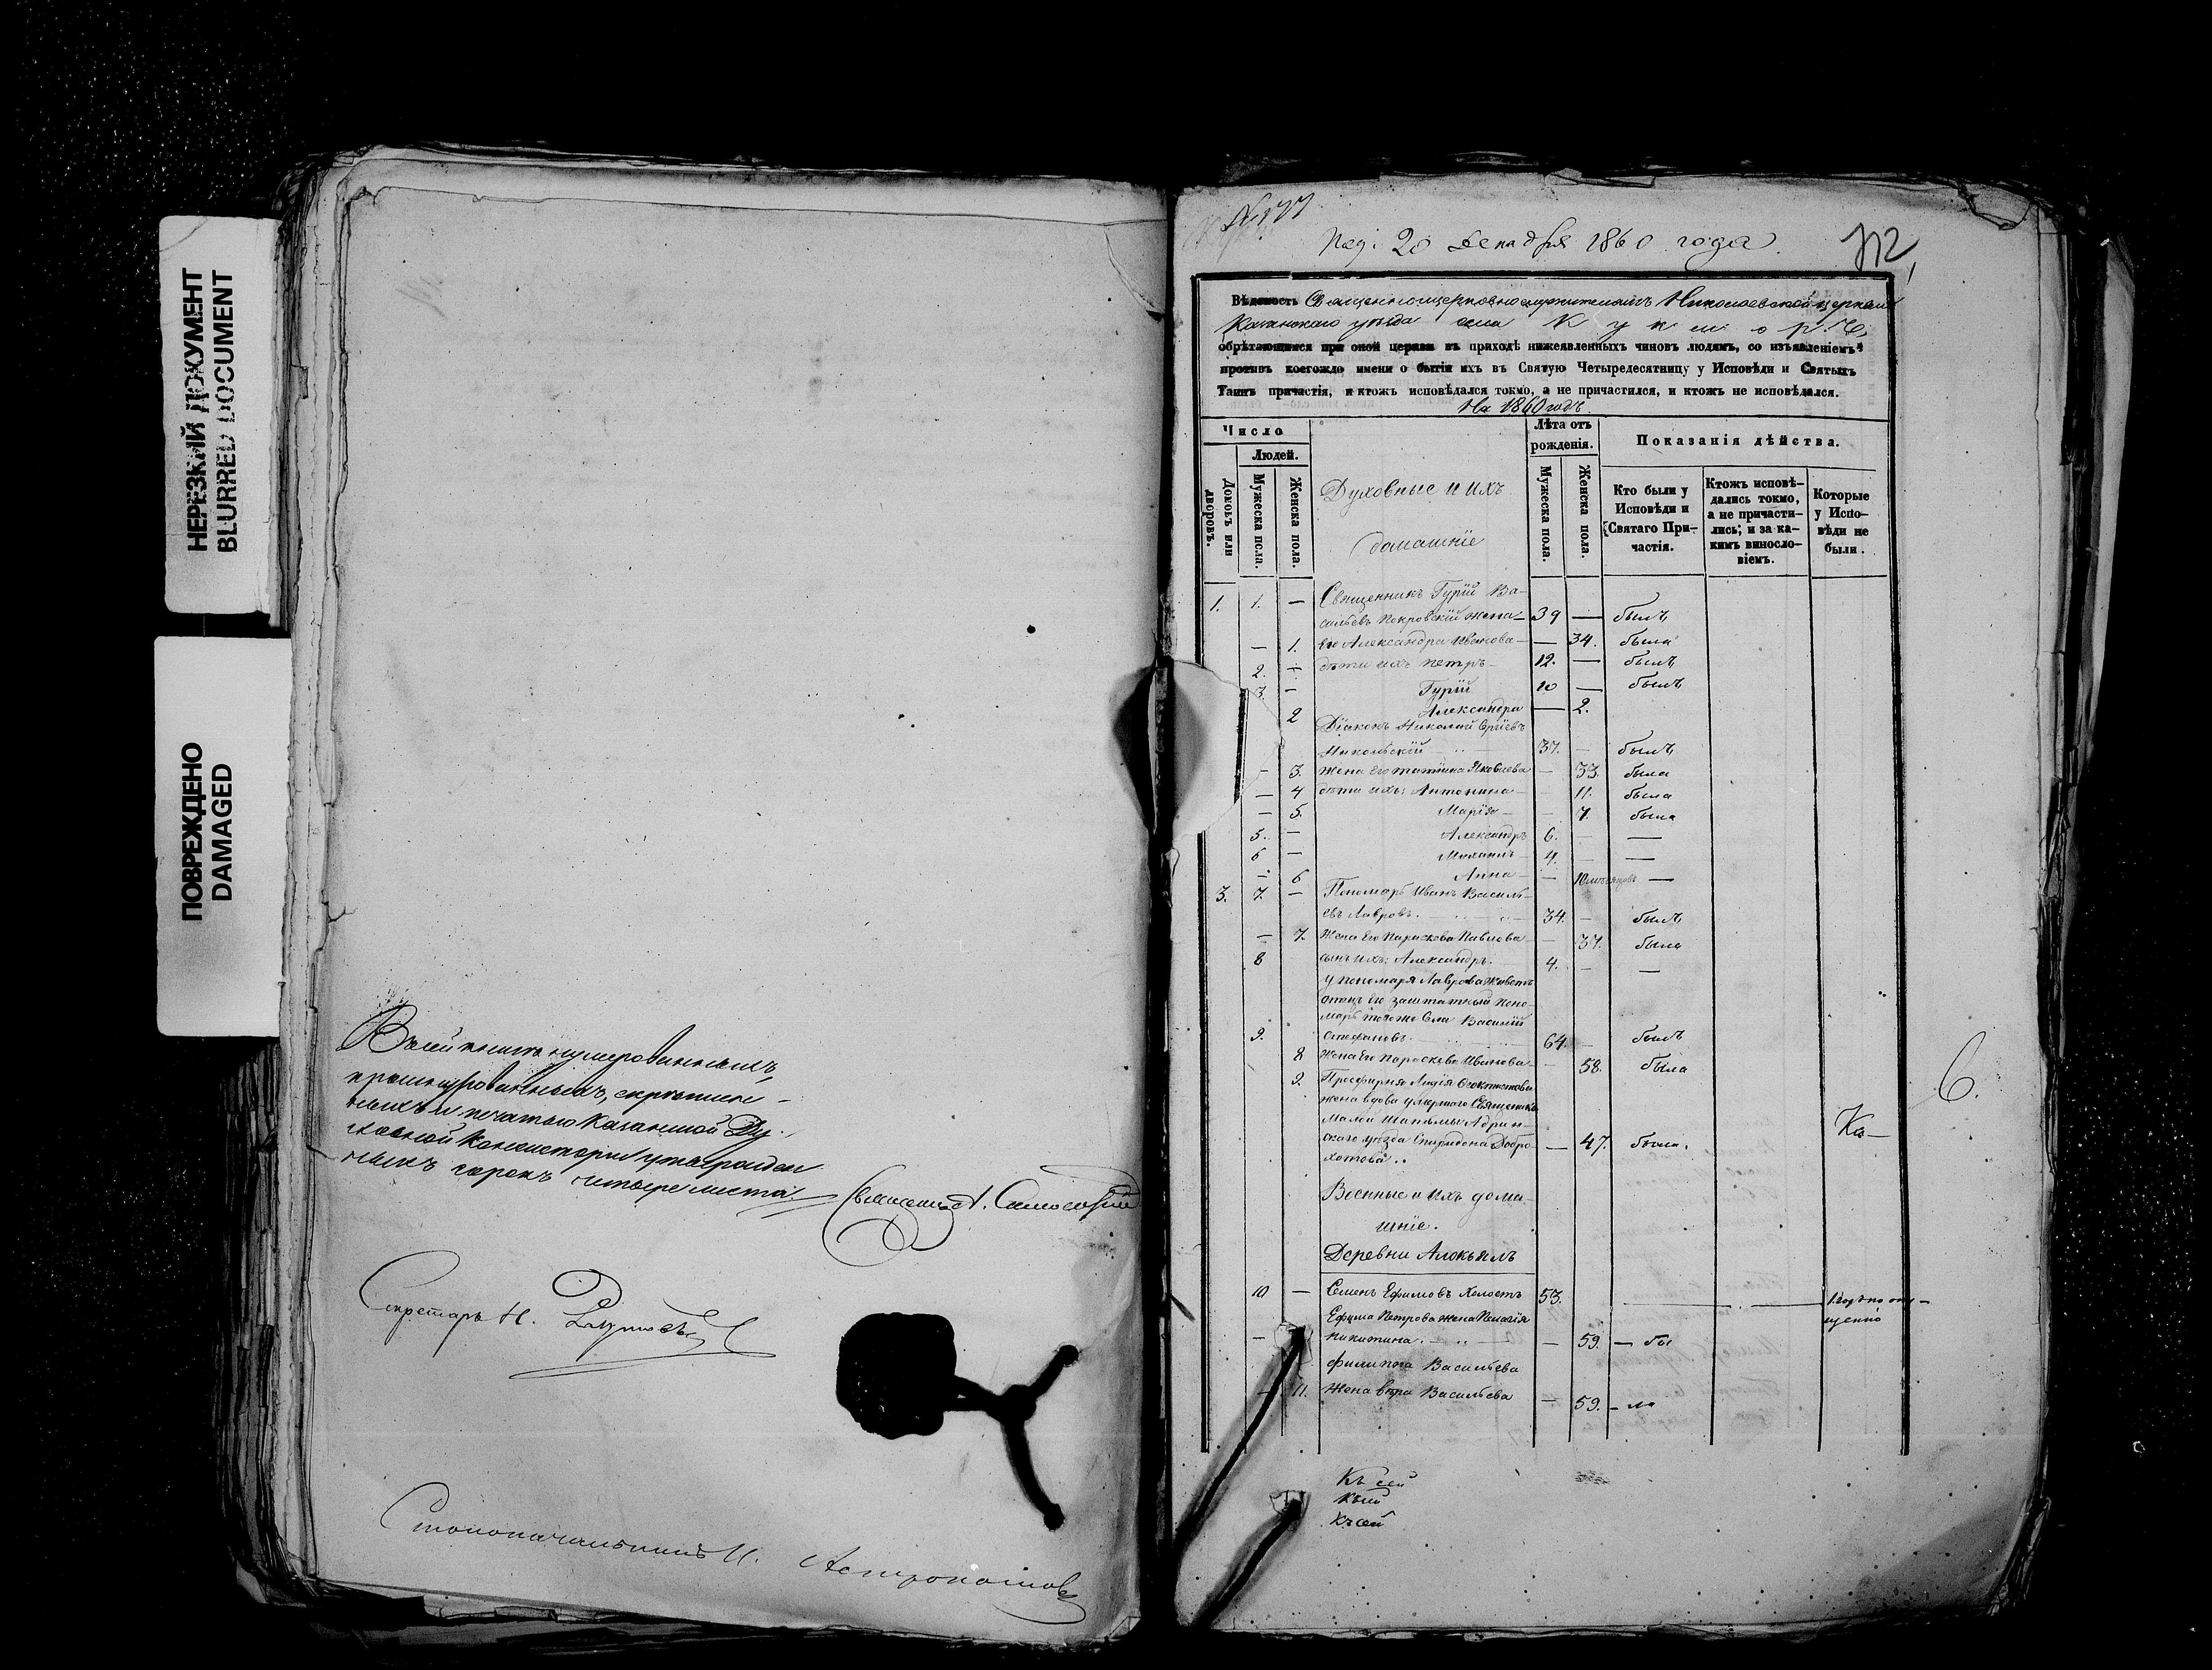 НЕРЕЗКИЙ ДОКУМЕНТ
BLURRED DOCUMENT
ПОВРЕЖДЕНО
DAMAGED
Въ сей книгѣ нумерованныхъ,
прошнурованныхъ, скрѣплен-
ныхъ и печатью Казанской Ду-
ховной Консисторіи утвержден
ныхъ сорокъ четыре листа.
Священникъ А.
Секретарь Н.
Столоначальникъ И.
№ 177
20 Декабря 1860 года.
712
Вѣдомость Священноцерковнослужителямъ Николаевской церкви
Казанскаго уѣзда села Кукмора
обрѣтающимся при оной церкви въ приходѣ нижеявленныхъ чиновъ людямъ, со изъявленіемъ
противъ коегождо имени о бытіи ихъ въ Святую Четыредесятницу у Исповѣди и Святыхъ
Таинъ причастія, и ктожъ исповѣдался токмо, а не причастился, и ктожъ не исповѣдался.
На 1860 годъ.
Число
Людей.
Домовъ или дворовъ.
Мужеска пола.
Женска пола.
Духовные и ихъ
домашніе
Лѣта отъ рожденія.
Мужеска пола.
Женска пола.
Показанія дѣйства.
Кто были у Исповѣди и Святаго При-частія.
Ктожъ исповѣ-дались токмо, а не причасти-лись; и за ка-кимъ винosло-віемъ.
Которые у Испо-вѣди не были.
1. 1. — Священникъ Гурій Ва-
сильевъ Покровскій жена — 39 — былъ
— 1. его Александра Иванова — — 34. была
2. — дѣти ихъ Петръ — 12. — былъ
3. — Гурій 10 — былъ
2 Александра — 2.
Діаконъ Николай Сергіевъ
Никольскій 37. — былъ
— 3. Жена его Татіана Яковлева — 33. была
— 4 дѣти ихъ: Антонина — 11. была
— 5. Марія — — 7. была
5. — Александръ 6. — —
6 — Михаилъ 4. — —
— 6 Анна — — 10 мѣсяцовъ —
3. 7. — Пономарь Иванъ Василь-
евъ Лавровъ. 34. — былъ
— 7. Жена его Параскева Павлова — 37. была
8 сынъ ихъ: Александръ. 4. — —
у пономаря Лаврова живетъ
отецъ его заштатный поно-
марь тогоже села Василій
9. Стефановъ 64. — былъ
8 Жена его Параскева Иванова — 58. была
9. Просфирня Лидія
жена вдова умершаго Священника
скаго уѣзда Спиридона Добро-
хотова — 47. была.
Ка—
6.
Военные и ихъ дома-
шніе.
Деревни
10 — Семенъ Ефимовъ Холостъ 53. —
Ефима Петрова жена Пелагія
— Никитина. — — 59. — бы
Филиппа Васильева
— 11. Жена Вѣра Васильева — 59. — ла
Къ сей
къ сей
къ сей